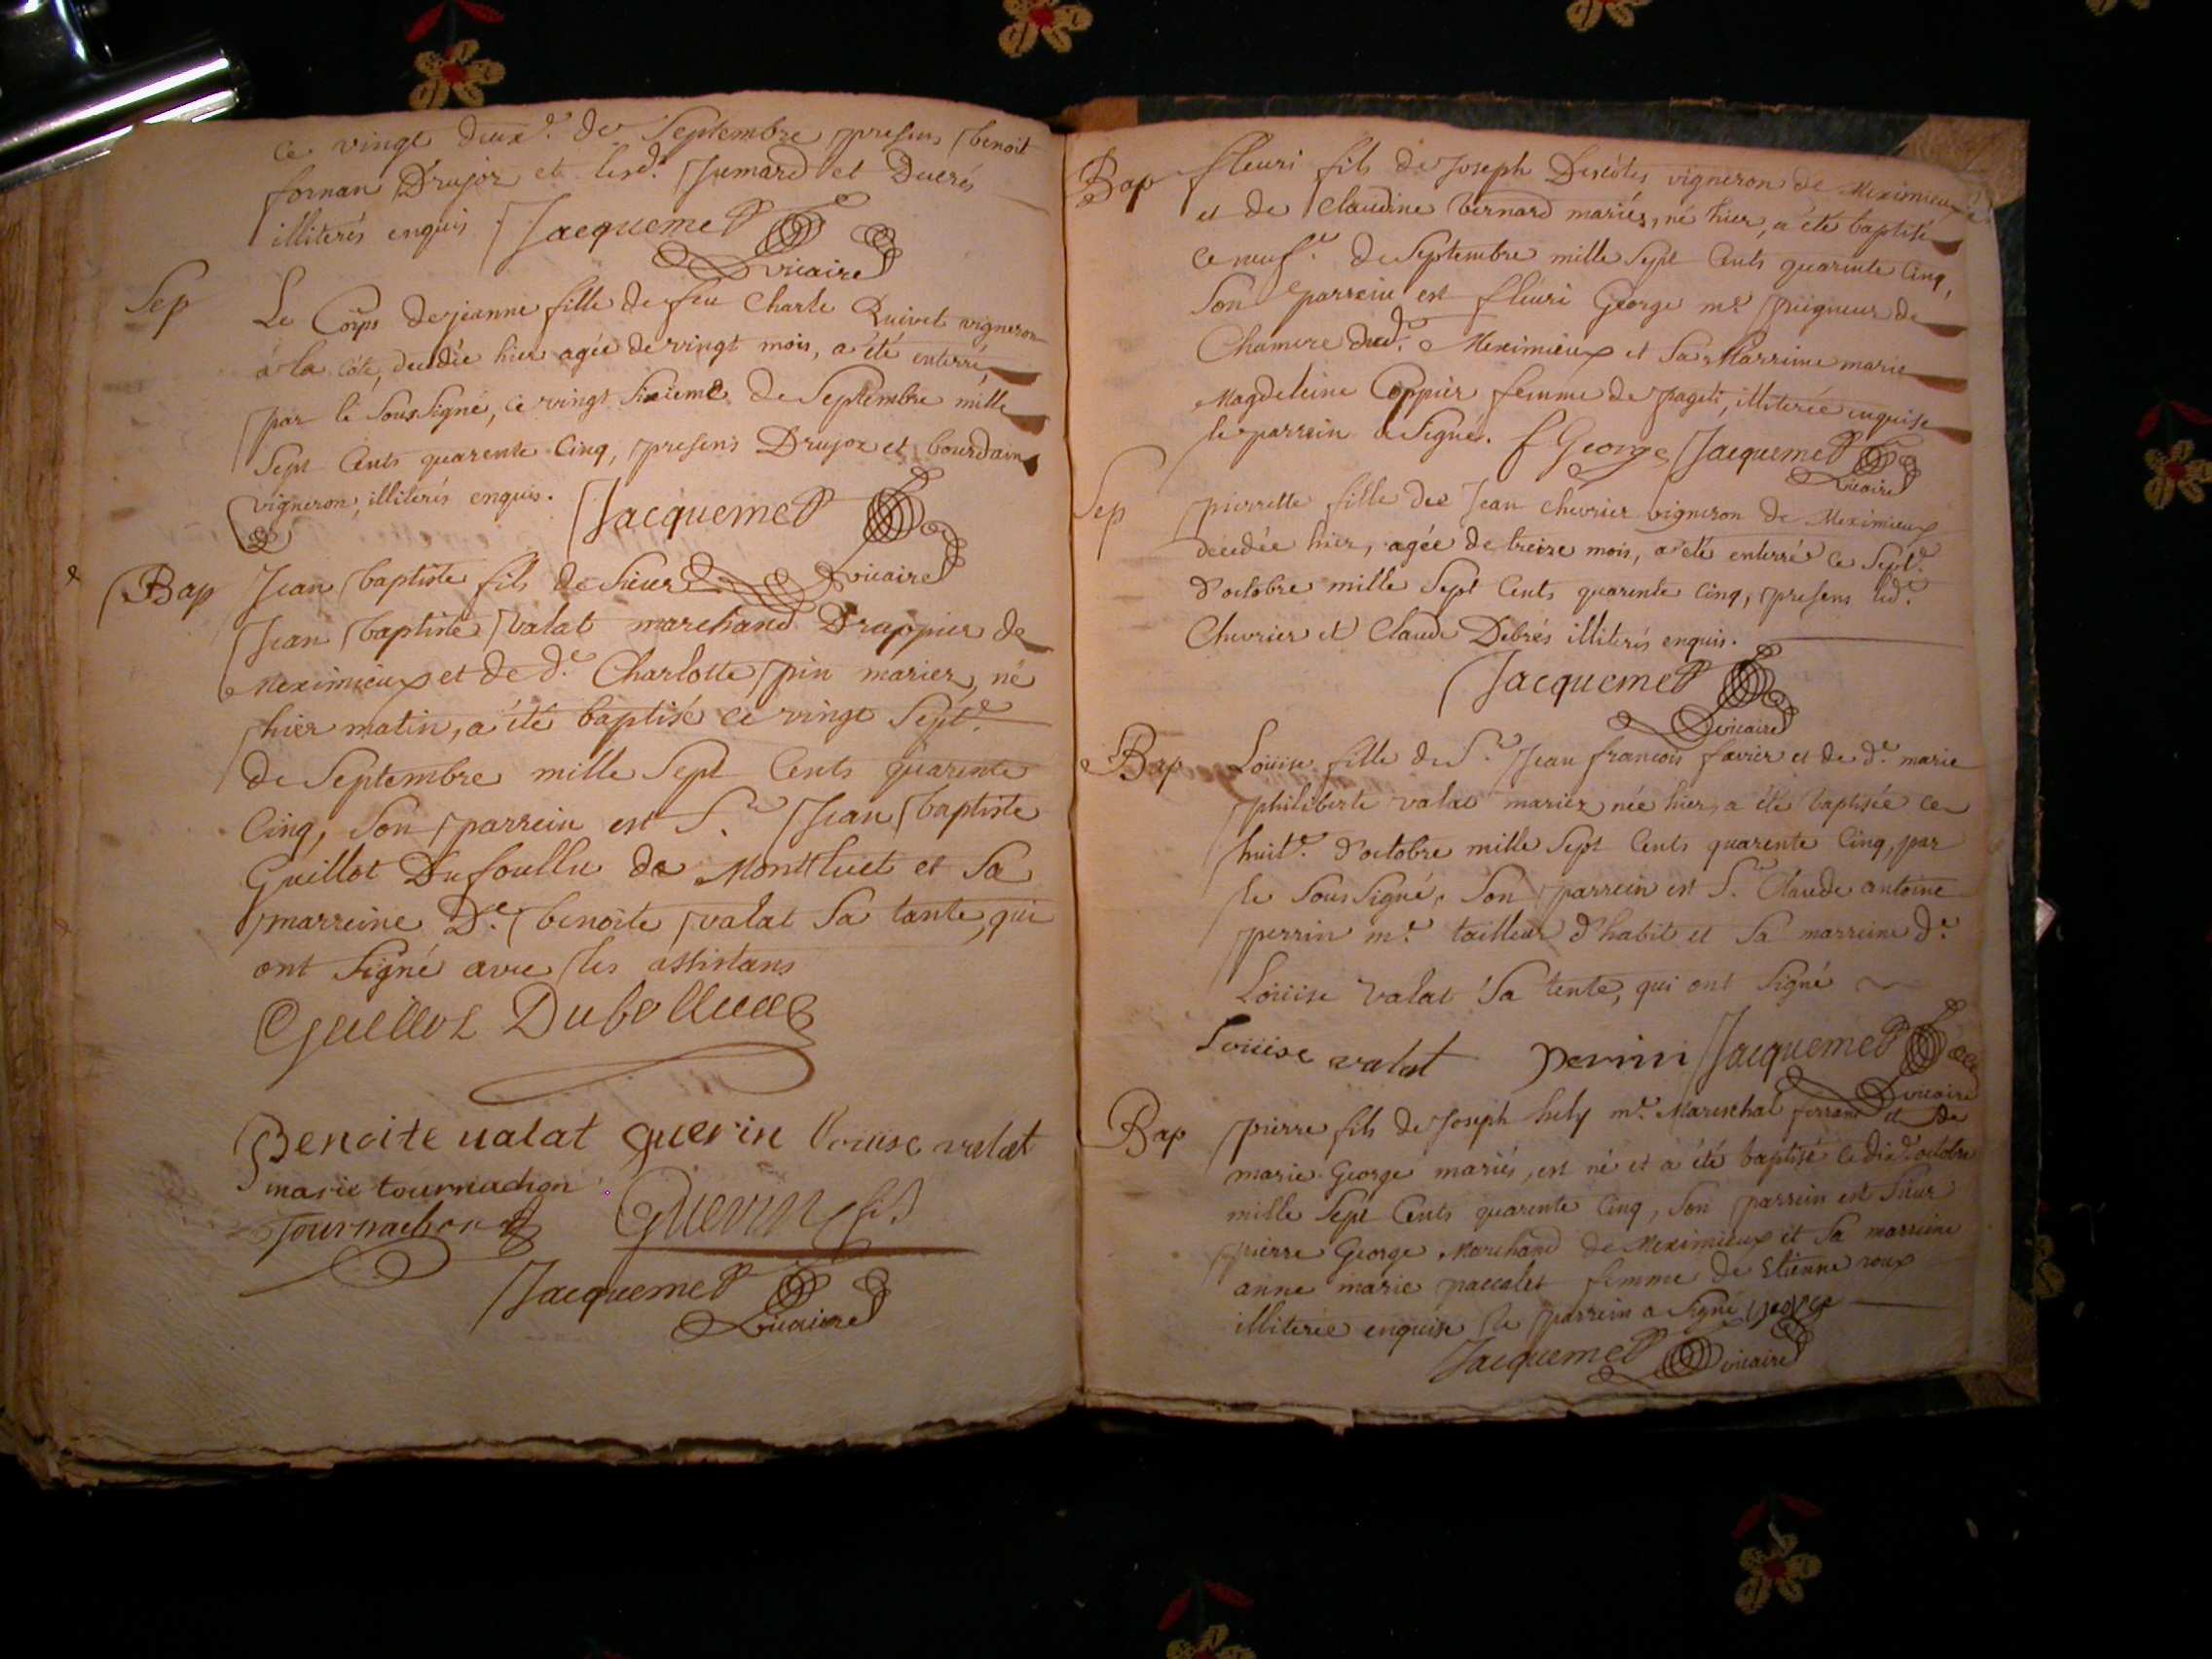 ce vingt deux.e de Septembre, presens benoit
fornan Drujoz et lesd. Jumard et Ducrés
illiterés enquis Jacquemet
vicaire
Sep
Le Corps de jeanne fille de feu Charle Quivet vigneron
à la Côte, decedée hier agée de vingt mois, a été enterré,
par le Soussigné, ce vingt Sixieme de Septembre mille
Sept Cents quarente Cinq, presens Drujoz et bourdain
vigneron, illiterés enquis. Jacquemet
vicaire
Bap
Jean baptiste fils de Sieur
Jean baptiste valat marchand Drappier de
Meximieux et de d.e Charlotte pin mariez, né
hier matin, a été baptisé ce vingt Sept.e
de Septembre mille Sept Cents quarente
Cinq, Son parrein est S.r Jean baptiste
Guillot Dufoullu de Montluel et Sa
marreine D.e benoite valat Sa tante, qui
ont Signé avec les assistans
Guillot
Benoite ualat guerin Louise valat
marie tournachon
Tournachon Guerin fils
Jacquemet
vicaire
Bap
fleuri fils de Joseph Descôtes vigneron de Meximieux
et de Claudine bernard mariés, né hier, a été baptisé
ce neuf.e de Septembre mille Sept Cents quarente Cinq,
Son parrein est fleuri George m.e peigneur de
Chanvre dud. Meximieux et Sa Marreine marie
Magdeleine Coppier femme de pageti, illiterée enquise
le parrein a Signé. f George Jacquemet
vicaire
Sep
pierrette fille de Jean chevrier vigneron de Meximieux
decedée hier, agée de treize mois, a été enterré ce Sept.e
d'octobre mille Sept Cents quarente cinq, presens led.
Chevrier et Claude Debrés illiterés enquis.
Jacquemet
vicaire
Bap
Louise fille de S.r Jean francois favier et de d.e marie
philiberte valat mariez née hier, a été baptisée ce
huit.e d'octobre mille Sept Cents quarente Cinq, par
le Soussigné, Son parrein est S.r Claude antoine
perrin m.e tailleur d'habit et Sa marreine d.e
Louise valat Sa tente, qui ont Signé
Louise valat perrin Jacquemet
vicaire
Bap
pierre fils de Joseph hely m.e Mareschal ferrant et de
marie George mariés, est né et a été baptisé ce dix d'octobre
mille Sept Cents quarente Cinq, Son parrein est Sieur
pierre George Marchand de Meximieux et Sa marreine
anne marie paccalet femme de Etienne roux
illiterée enquise le parrein a Signé george
Jacquemet vicaire